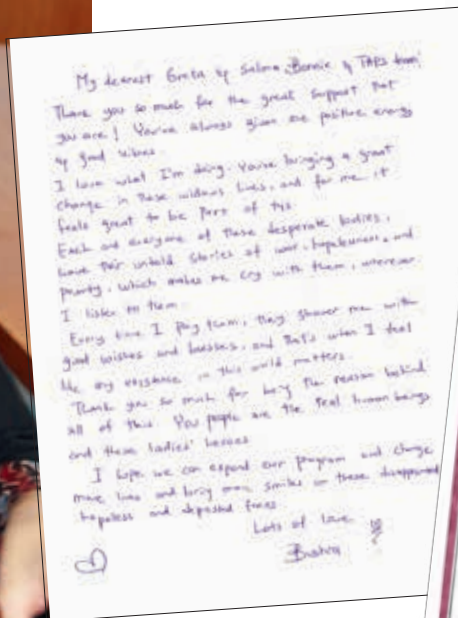 My dearest Greta & Salma, Bonnie & TAPS team,
Thank you so much for the great support that
you are! You've always given me positive energy
& good vibes.
I love what I'm doing. You're bringing a great
change in these widows lives, and for me it
feels great to be part of this.
Each and everyone of these desperate ladies,
have their untold stories of war, hopelessness, and
poverty, which makes me cry with them, whenever
I listen to them.
Every time I pay them, they shower me with
good wishes and , and that's when I feel
like my existence in this world matters.
Thank you so much for being the reason behind
all of this. You people are the real human beings
and these ladies' heroes.
I hope we can expand our program and change
more lives and bring more smiles on these disappointed
hopeless and depressed faces.
Lots of love
Bushra